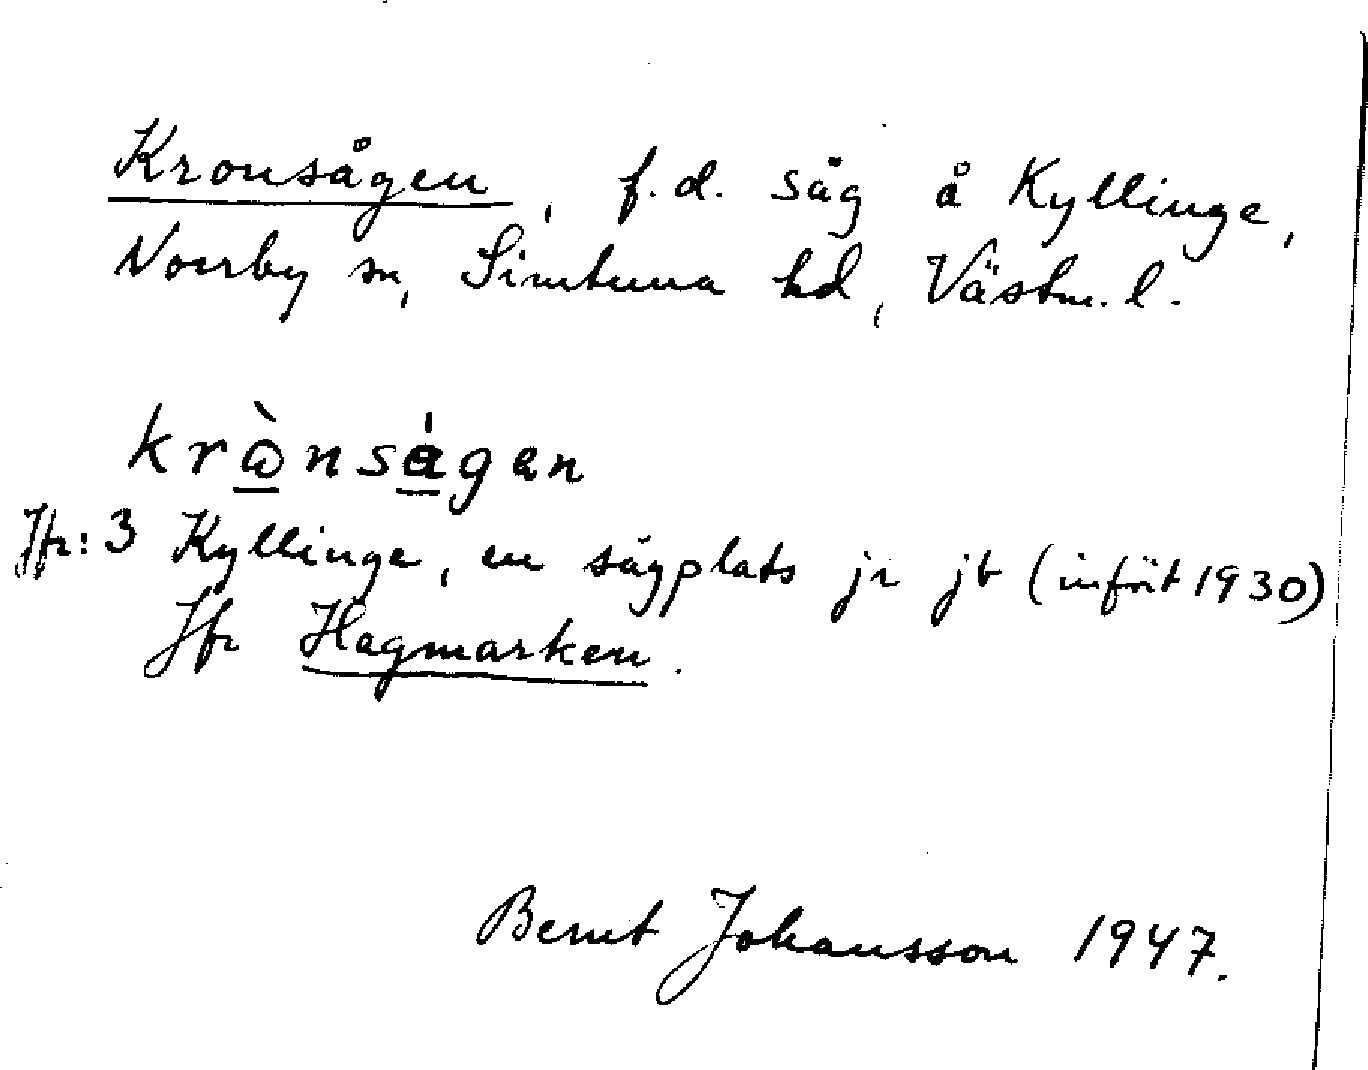 Kronsågen, f.d. såg å Kyllinge,
Norrby sn, Simtuna hd, Västm. l.
krὼnságen
Jfr: 3 Kyllinge, en sågplats jr jb (infört 1930)
Jfr Hagmarken.
Bernt Johansson 1947.